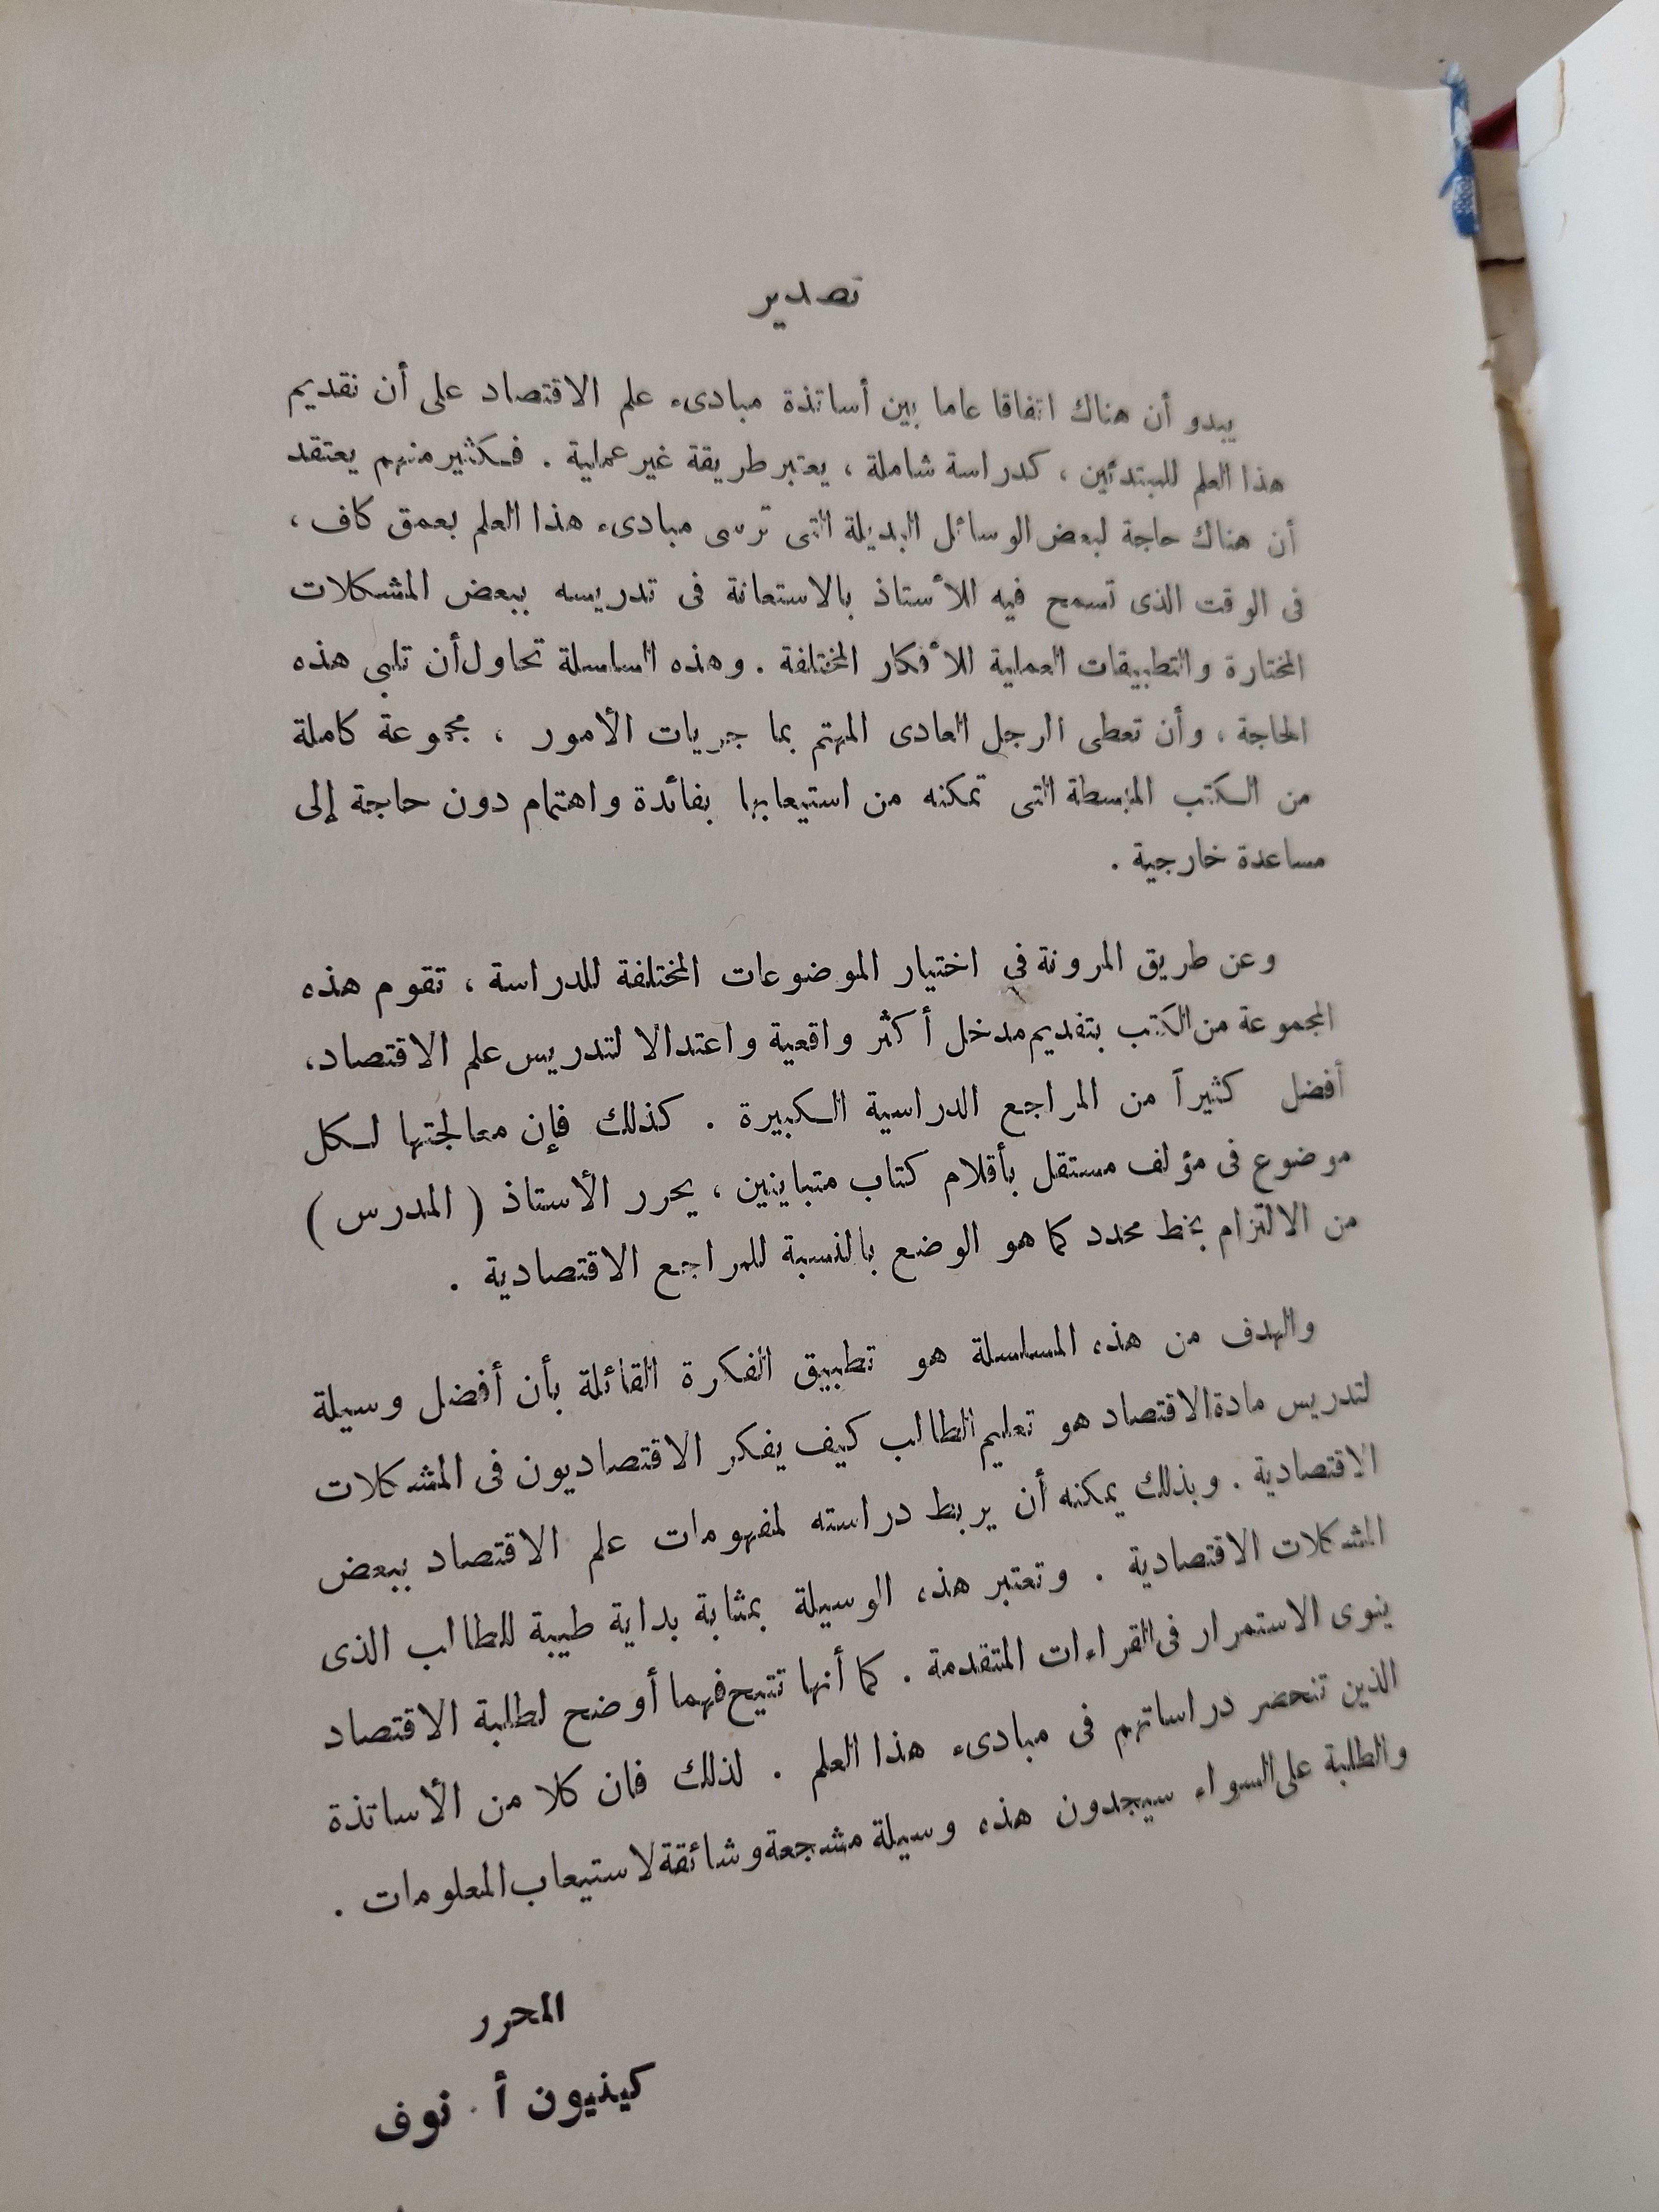 تصدير
يبدو أن هناك اتفاقا عاما بين أساتذة مبادىء علم الاقتصاد على أن تقديم
هذا العلم للمبتدئين ، كدراسة شاملة ، يعتبر طريقة غير عملية . فكثير منهم يعتقد
أن هناك حاجة لبعض الوسائل البديلة التى ترسى مبادىء هذا العلم بعمق كاف ،
فى الوقت الذى تسمح فيه للأستاذ بالاستعانة فى تدريسه ببعض المشكلات
المختارة والتطبيقات العملية للأفكار المختلفة . وهذه السلسلة تحاول أن تلبى هذه
الحاجة ، وأن تعطى الرجل العادى المهتم بما جريات الأمور ، مجموعة كاملة
من الكتب المبسطة التى تمكنه من استيعابها بفائدة واهتمام دون حاجة إلى
مساعدة خارجية .
وعن طريق المرونة في اختيار الموضوعات المختلفة للدراسة ، تقوم هذه
المجموعة من الكتب بتقديم مدخل أكثر واقعية واعتدالا لتدريس علم الاقتصاد ،
أفضل كثيراً من المراجع الدراسية الكبيرة . كذلك فإن معالجتها لكل
موضوع فى مؤلف مستقل بأقلام كتاب متباينين ، يحرر الأستاذ ( المدرس )
من الالتزام بخط محدد كما هو الوضع بالنسبة للمراجع الاقتصادية .
والهدف من هذه السلسلة هو تطبيق الفكرة القائلة بأن أفضل وسيلة
لتدريس مادة الاقتصاد هو تعليم الطالب كيف يفكر الاقتصاديون فى المشكلات
الاقتصادية . وبذلك يمكنه أن يربط دراسته لمفهومات علم الاقتصاد ببعض
المشكلات الاقتصادية . وتعتبر هذه الوسيلة بمثابة بداية طيبة للطالب الذى
ينوى الاستمرار فى القراءات المتقدمة . كما أنها تتيح فهما أوضح لطلبة الاقتصاد
الذين تنحصر دراساتهم فى مبادىء هذا العلم . لذلك فان كلا من الأساتذة
والطلبة على السواء سيجدون هذه وسيلة مشجعة وشائقة لاستيعاب المعلومات .
المحرر
كينيون أ . نوف